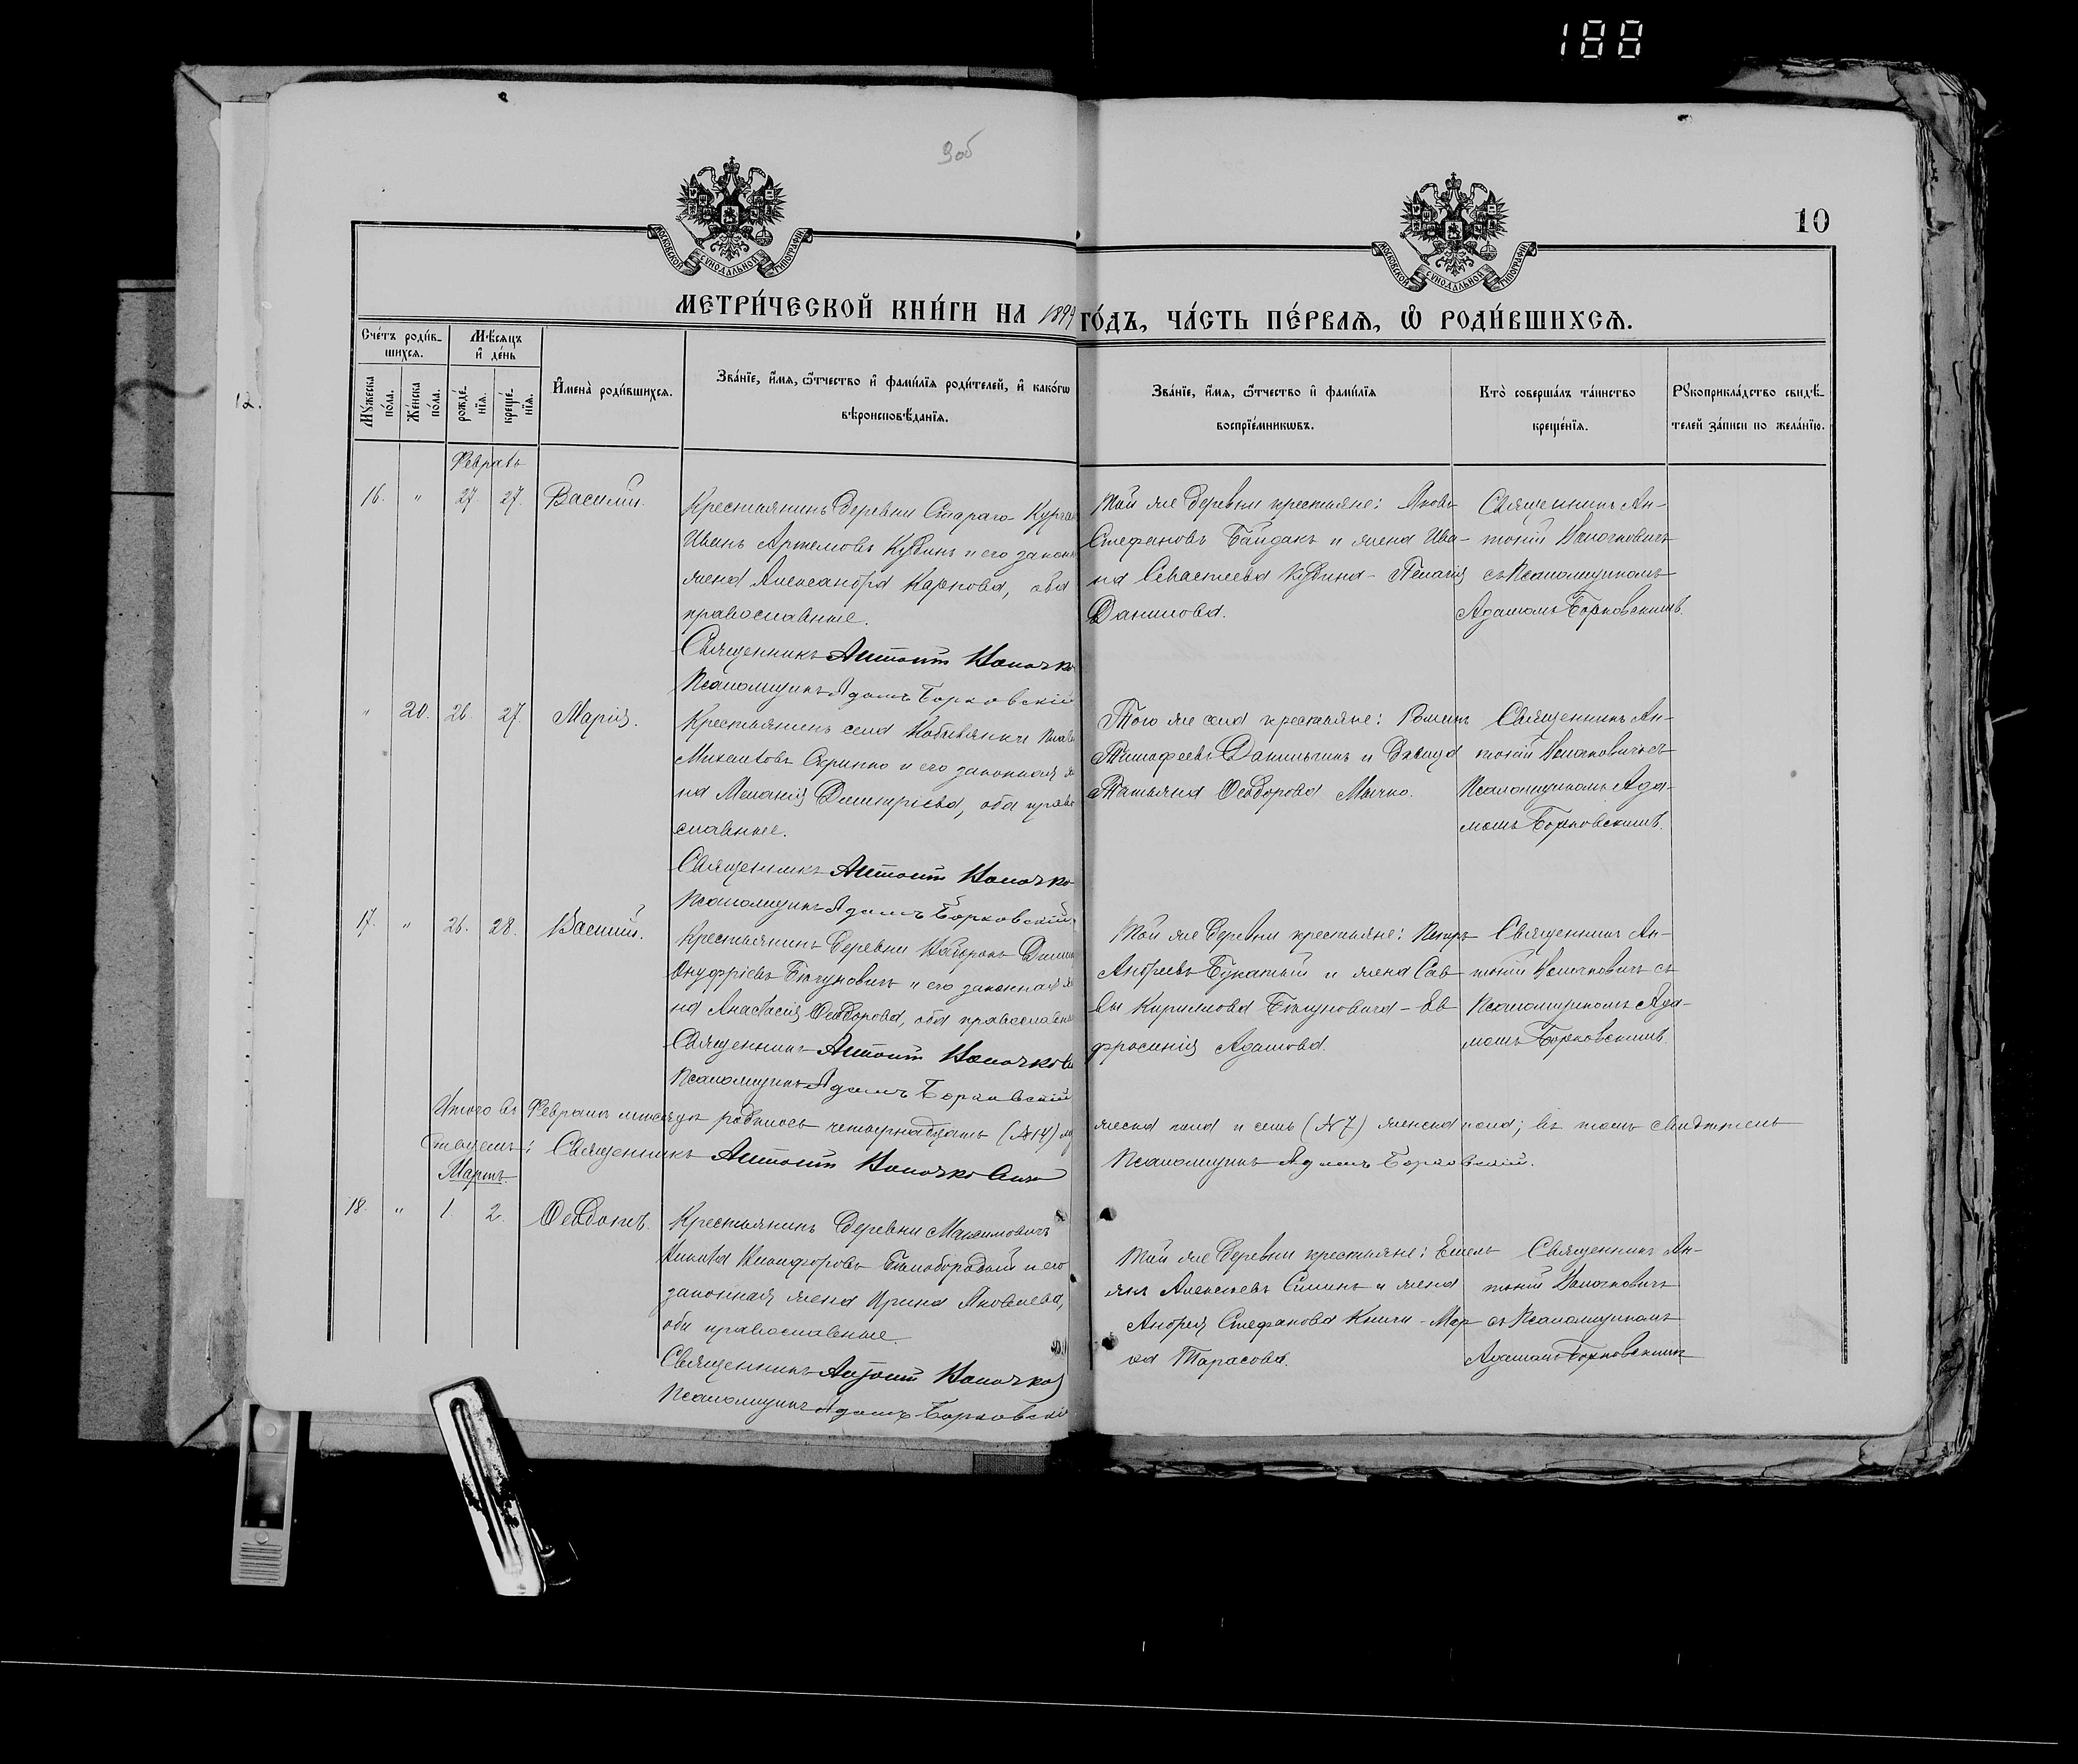 188
9об
10
МОСКОВСКОЙ СУНОДАЛЬНОЙ ТИПОГРАФІИ
МОСКОВСКОЙ СУНОДАЛЬНОЙ ТИПОГРАФІИ
МЕТРИ́ЧЕСКОЙ КНИ́ГИ НА 1899 ГО́ДЪ, ЧА́СТЬ ПЕ́РВАѦ, Ѡ҆ РОДИ́ВШИХСѦ.
Сче́тъ роди́в-
шихсѧ.
Мѣ́сѧцъ
и҆ де́нь
Мꙋ́жеска
по́ла.
Же́нска
по́ла.
рожде́-
нїѧ.
креще́-
нїѧ.
И҆мена̀ роди́вшихсѧ.
Зва́нїе, и҆́мѧ, ѻ҆́тчество и҆ фами́лїѧ роди́телей, и҆ како́гѡ
вѣроисповѣ́данїѧ.
Зва́нїе, и҆́мѧ, ѻ҆́тчество и҆ фами́лїѧ
воспрїе́мникѡвъ.
Кто̀ соверша́лъ та́инство
креще́нїѧ.
Рꙋкоприкла́дство свидѣ́-
телей за́писи по жела́нїю.
12.
Февраль
16. " 27. 27. Василій.
Крестьянинъ деревни Стараго-
Иванъ Артемовъ Кудинъ и его
жена Александра Карпова, оба
православные.
Священникъ Антоній
Псаломщикъ Адамъ Борковскій
Той же деревни крестьяне: Яковъ
Стефановъ Байдакъ и жена Ива-
на Севастеева Кудина - Пелагія
Данилова.
Священникъ Ан-
тоній
съ Псаломщикомъ
Адамомъ Борковскимъ.
" 20. 26. 27. Марія.
Крестьянинъ села Кобылянки
Михаиловъ Скрипко и его законная
на Меланія Димитріева, оба право
славные.
Священникъ Антоній
Псаломщикъ Адамъ Борковскій.
Того же села крестьяне: Романъ
Тимофеевъ Данильчикъ и девица
Татьяна Ѳеодорова Мычко.
Священникъ Ан-
тоній
Псаломщикомъ Ада-
момъ Борковскимъ.
17. " 26. 28. Василій.
Крестьянинъ деревни
Онуфріевъ Бѣгуновичъ и его законная
на Анастасія Ѳеодорова, оба православны
Священникъ Антоній
Псаломщикъ Адамъ Борковскій
Той же деревни крестьяне: Петръ
Андреевъ Букатый и жена Сав
вы Кирилова Бѣгуновича - Ев
фросинія Адамова.
Священникъ Ан-
тоній
Псаломщикомъ Ада-
момъ Борковскимъ.
Итого въ Февралѣ мѣсяцѣ родилось четырнадцать (№14) му жеска пола и семь (№7) женска пола; въ томъ свидѣтель
ствуемъ: Священникъ Антоній Псаломщикъ Адамъ Борковскій.
Мартъ.
18. " 1. 2. Ѳеодотъ.
Крестьянинъ деревни Максимовичъ
Никита Никифоровъ Бѣлобородый и его
законная жена Ирина Яковлева,
оба православные
Священникъ Антоній
Псаломщикъ Адамъ Борковскі
Той же деревни крестьяне: Емель
янъ Алексѣевъ Силинъ и жена
Андрея Стефанова Книги - Мар
ѳа Тарасова.
Священникъ Ан-
тоній
съ Псаломщикомъ
Адамомъ Борковскимъ